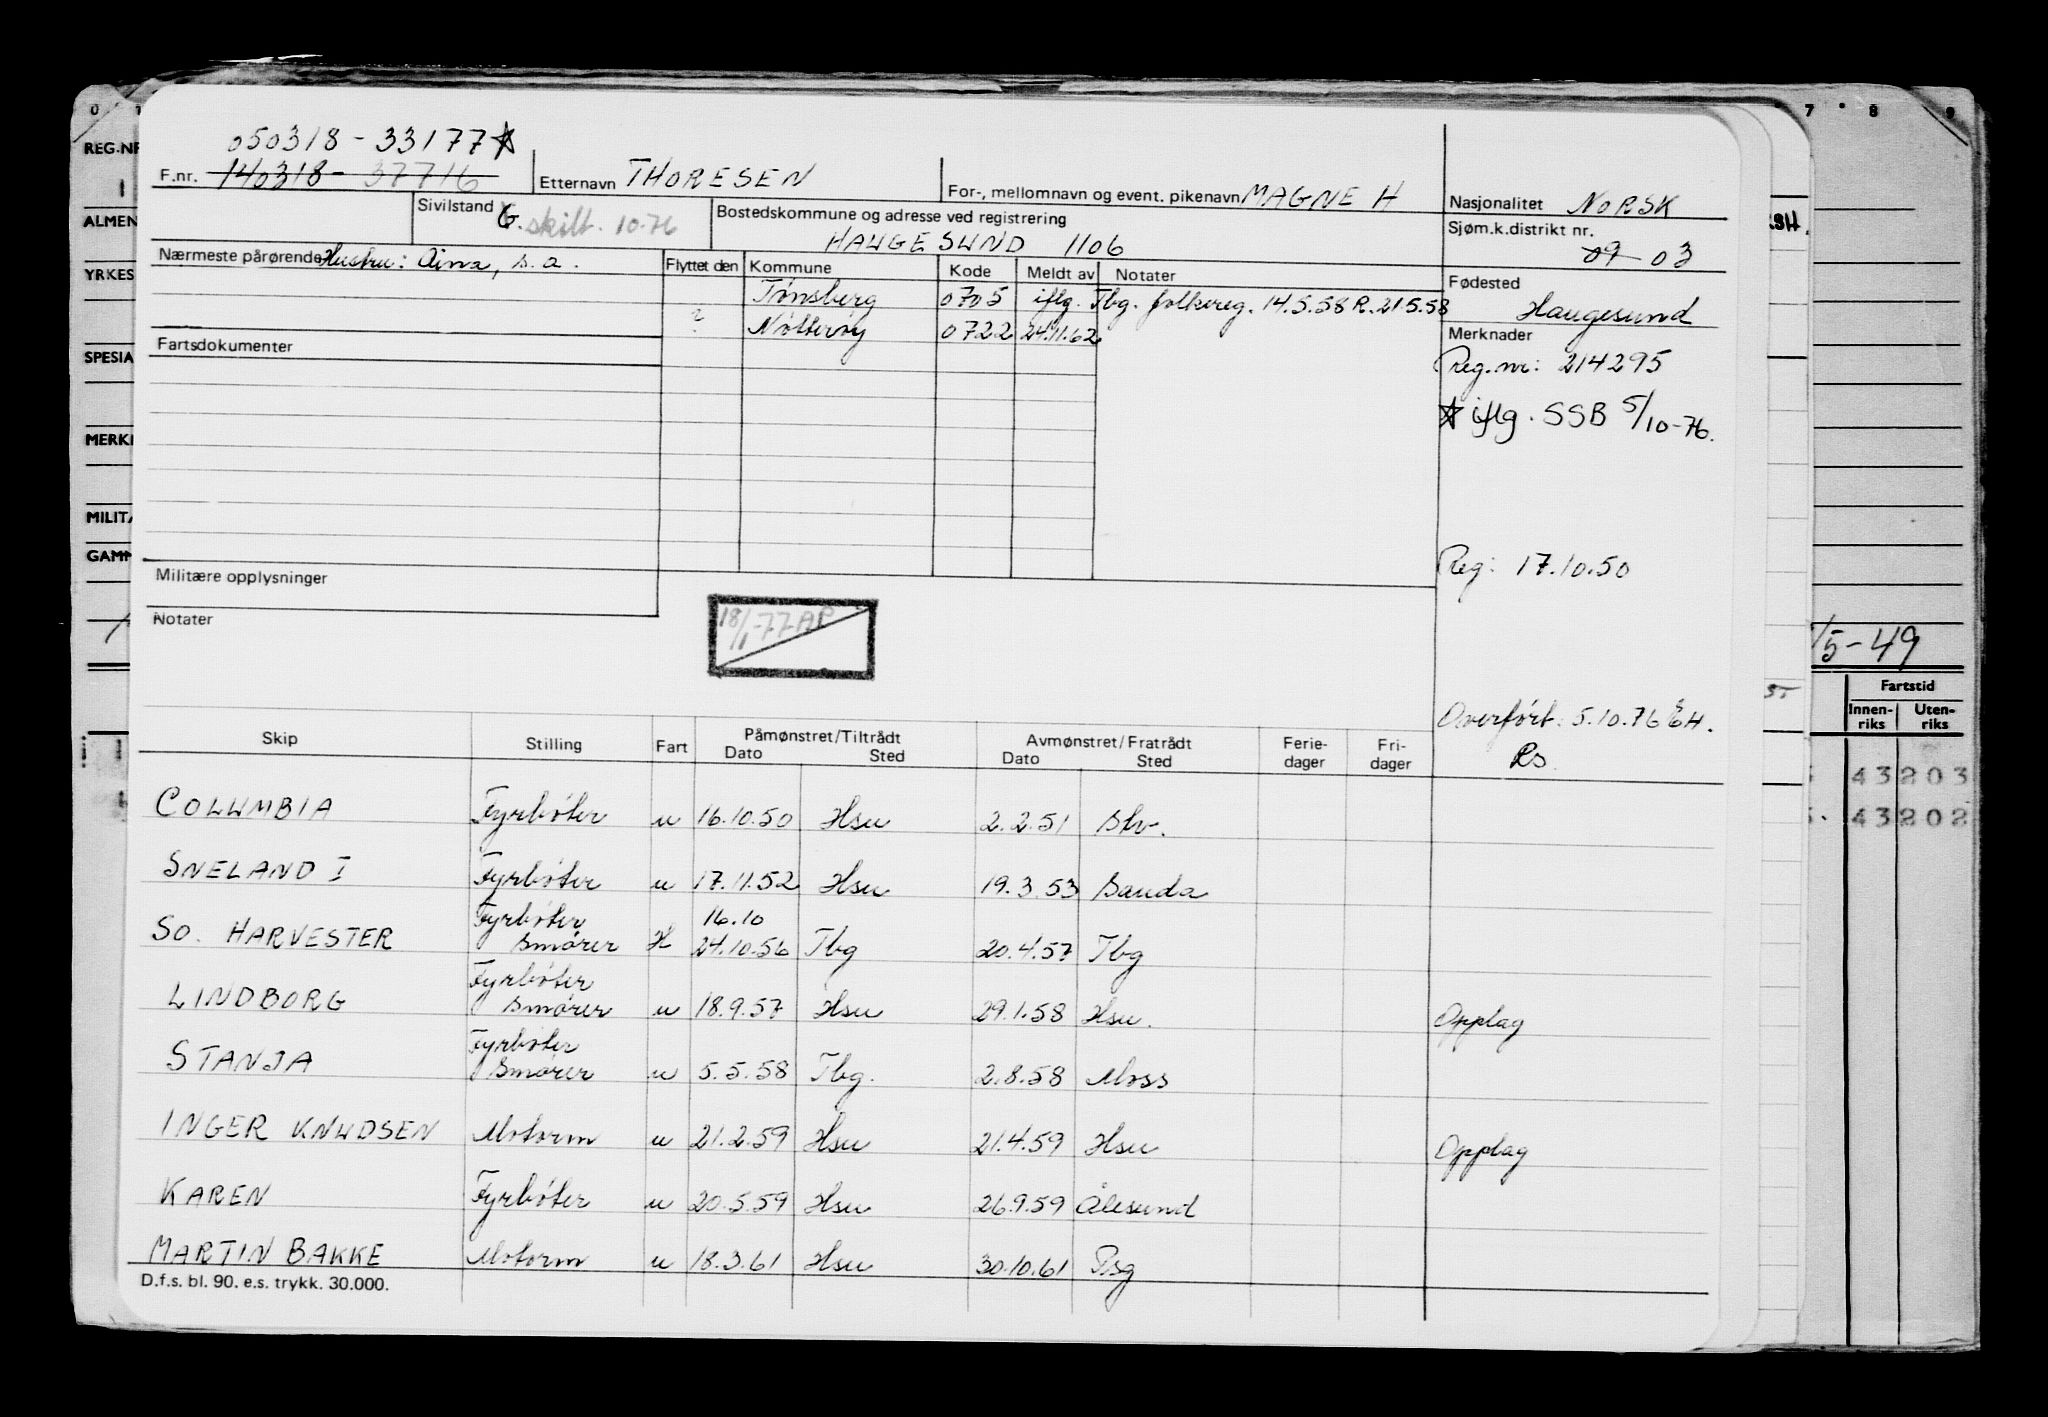 0 7 8 9
050318 - 33177 ☆
REG.NR
F.nr. 140318 - 37716 Etternavn THORESEN For-, mellomnavn og event. pikenavn MAGNE H Nasjonalitet NORSK
ALMEN Sivilstand G. skilt. 10-76 Bostedskommune og adresse ved registrering Sjøm.k.distrikt nr.
HAUGESUND 1106 09 03
YRKES Nærmeste pårørende Hustru: Aina, s.a. Flyttet den Kommune Kode Meldt av Notater Fødested
Tønsberg 0705 iflg. Tbg. folkereg. 14.5.58 R. 21.5.58 Haugesund
? Nøtterøy 0722 24.11.62 Merknader
SPESIA Fartsdokumenter Reg.nr: 214295
☆ iflg. SSB 5/10-76.
MERK
MILITÆ
GAMM Reg: 17.10.50
Militære opplysninger
Notater 18/1-77 AP
/5-49
Fartstid
Innen-riks Uten-riks
Overført: 5.10.76 EH.
Rs
Skip Stilling Fart Påmønstret/Tiltrådt Avmønstret/Fratrådt Ferie- Fri-
Dato Sted Dato Sted dager dager
43 203
43 202
COLUMBIA Fyrbøter u 16.10.50 Hsu 2.2.51 Slv.
SNELAND I Fyrbøter u 17.11.52 Hsu 19.3.53 Sauda
Fyrbøter 16.10
SO. HARVESTER Smører H 24.10.56 Tbg 20.4.57 Tbg
Fyrbøter
LINDBORG Smører u 18.9.57 Hsu 29.1.58 Hsu. Opplag
Fyrbøter
STANJA Smører u 5.5.58 Tbg. 2.8.58 Moss
INGER KNUDSEN Motorm u 21.2.59 Hsu 21.4.59 Hsu Opplag
KAREN Fyrbøter u 20.5.59 Hsu 26.9.59 Ålesund
MARTIN BAKKE Motorm u 18.3.61 Hsu 30.10.61 Psg
D.f.s. bl. 90. e.s. trykk. 30.000.